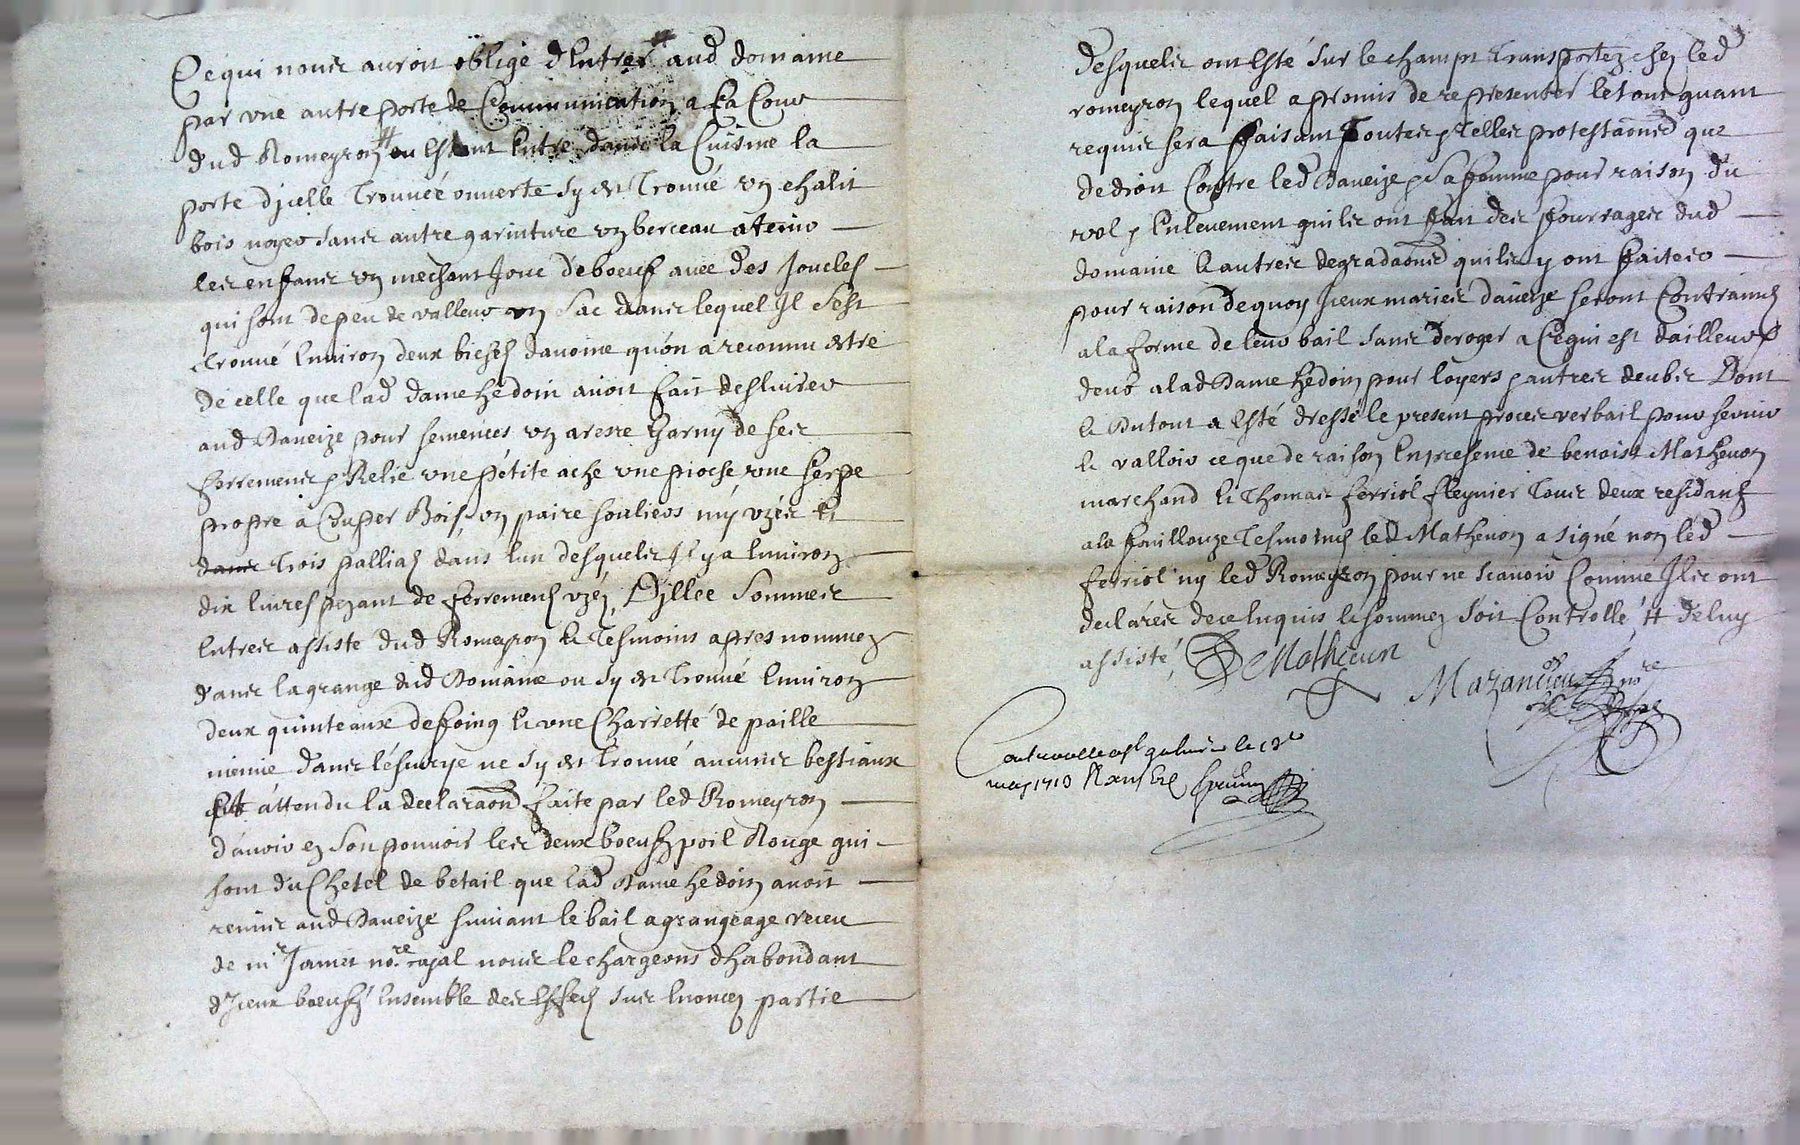 Ce qui nous auroit obligé d'Entrer aud domaine
par une autre porte de Communication a la Cour
dud Romeyron # ou Estant Entre dans la Cuisine la
porte dicelle Trouvéé ouverte Sy est Trouvé un chalit
bois noyer sans autre garniture un berceau a tenir
les enfans un mechant Joue de boeuf avec des Joucles
qui sont de peu de valleur un Sac dans lequel Il Sest
Trouvé Environ deux biches davoine qu'on a reconnu estre
de celle que lad dame hedoin avoit fait deslivrer
aud Daveize pour semences un areire Garny de ses
ferremens & Relie une pétite ache une pioche une serpe
propre a Couper Bois un paire souliers my uzés Et
dans Trois pallias dans lun desquels Il y a Environ
dix livres pezant de ferremens uzéz, Dillec Sommes
Entres assiste dud Romeyron Et Tesmoins apres nommez
dans la grange dud Domaine ou Sy est Trouvé Environ
deux quinteaux de foing Et une Charretté de paille
mémie dans l'éscurye ne Sy est Trouvé aucunes bestiaux
Et attendu la declaraõn faite par led Romeyron
d'avoir en Son pouvoir les deux boeufz poil Rouge qui
sont du Chetel de betail que lad Dame hedoin avoit
remis aud Daveize suivant le bail a grangeage receu
de mr Jamet nore royal nous le chargeons dhabondant
d'Iceux boeufz Ensemble des Effects sus Enoncez partie
desquels ont Esté sur le champt Transportez chez led
romeyron lequel a promis de representer le tout quant
requis sera faisant Toutes & Telles protestaõns que
de droit Contre led Daveize & Sa femme pour raison du
vol & Enlevement quils ont fait des fourrages dud
domaine Et autres degradaõns quils y ont faites
pour raison de quoy Iceux maries daveize seront Contraincts
a la forme de leur bail sans deroger a Ce qui est d'ailleurs
deub a lad Dame hedoin pour loyers & autres deubs Dont
Et Du tout a Esté dressé le present proces verbail pour servir
Et valloir ce que de raison En presence de benoist Mathevon
marchand Et Thomas ferriol Tous deux residants
a la Tesmoins led Mathevon a signé non led
ferriol ny led Romeyron pour ne scavoir Comme Ils ont
declarés de ce Enquis Et sommez Soit Controllé, # de luy
assisté,
Mathevon
nore
Controllé a st galmier le
may 1713